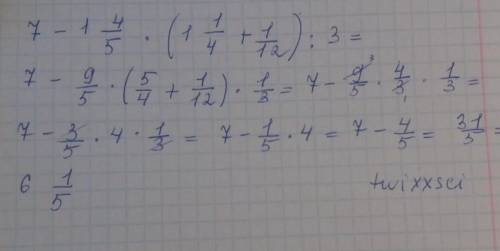 7 - 1 4/5 · (1 1/4 + 1/12) : 3 =
7 - 9/5 · (5/4 + 1/12) · 1/3 = 7 - 9̶³/5 · 4/3̶₁ · 1/3 =
7 - 3̶/5 · 4 · 1/3̶ = 7 - 1/5 · 4 = 7 - 4/5 = 31/5 =
6 1/5
twixxsci